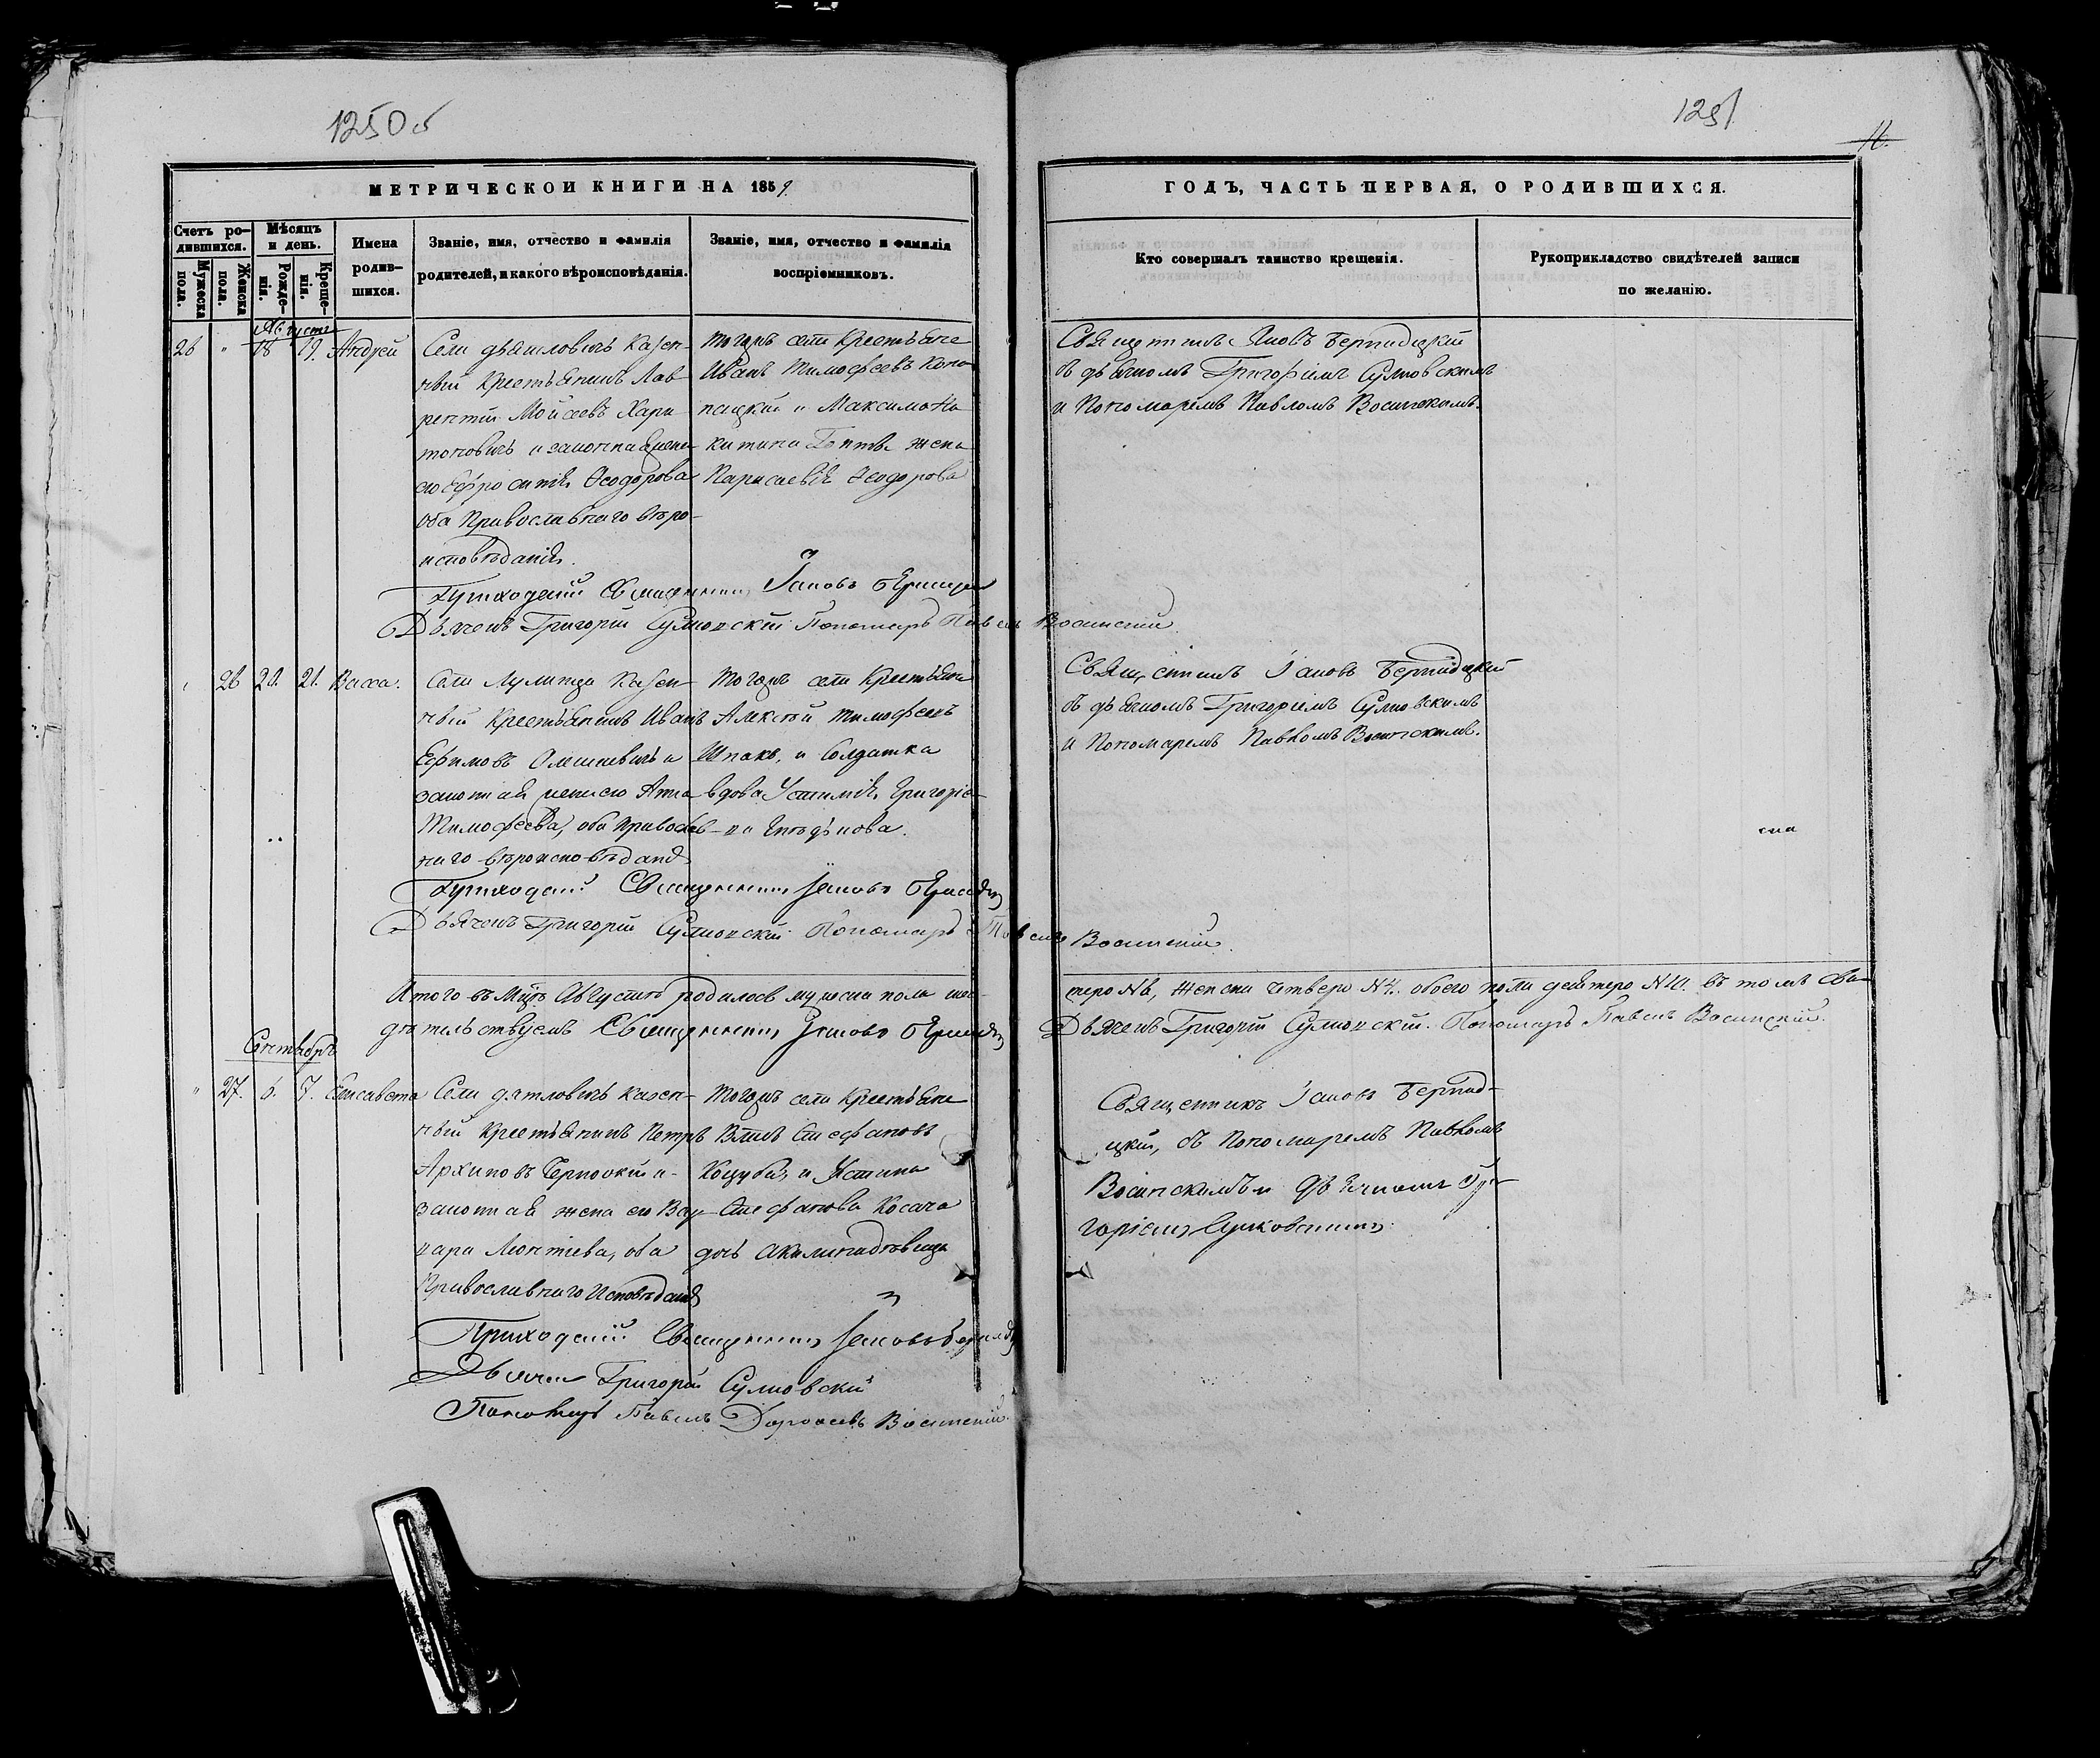 1250 об
1251
11.
МЕТРИЧЕСКОЙ КНИГИ НА 1859
ГОДЪ, ЧАСТЬ ПЕРВАЯ, О РОДИВШИХСЯ.
Счетъ родившихся.
Мужеска пола.
Женска пола.
Мѣсяцъ и день.
Рожденія.
Крещенія.
Имена родившихся.
Званіе, имя, отчество и фамилія
родителей, и какого вѣроисповѣданія.
Званіе, имя, отчество и фамилія
воспріемниковъ.
Кто совершалъ таинство крещенія.
Рукоприкладство свидѣтелей записи
по желанію.
Августъ
26 " 18 19. Андрей
Села Дятловичъ Казен-
ный Крестьянинъ Лав-
рентій Моисеевъ Хари-
тоновичъ и законная жена
его Ефросинія Ѳеодорова
оба Православнаго вѣро-
исповѣданія.
Тогожъ села Крестьяне
Иванъ Тимофеевъ Коно-
пацкій и Максима Ни-
китина жена
Параскевія Ѳеодорова
Священникъ Яковъ Бернадцкій
съ дьячкомъ Григоріемъ Сулковскимъ
и Пономаремъ Павломъ Восинскимъ.
Приходскій Священникъ Іаковъ
Дьячекъ Григорій Сулковскій Пономарь Павелъ Восинскій
" 26 20. 21. Васса.
Села Лулинца Казен-
ный Крестьянинъ Иванъ
Ефимовъ Олешкевичъ и
законная жена его Анна
Тимофеева, оба Православ-
наго вѣроисповѣданія
Тогожъ села Крестьянинъ
Алексѣй Тимофеевъ
Шпакъ, и Солдатка
вдова Устимія Григоріе-
ва
Священникъ Іаковъ Бернадцкій
съ дьячкомъ Григоріемъ Сулковскимъ
и Пономаремъ Павломъ Восинскимъ.
Приходскій Священникъ Іаковъ
Дьячекъ Григорій Сулковскій Пономарь Павелъ Восинскій.
Итого въ М-цѣ Августѣ родилось мужеска пола шес-
теро №6, женска четверо №4. обоего пола десятеро №10. въ томъ сви-
дѣтельствуемъ Священникъ Іаковъ
Дьячекъ Григорій Сулковскій. Пономарь Павелъ Восинскій.
Сентябрь
" 27. 6. 7. Елисавета
Села Дятловичъ казен-
ный Крестьянинъ Петръ
Архиповъ и
законная жена его Вар-
вара Леонтіева, оба
Православнаго Исповѣданія
Тогожъ села Крестьяне
Стефановъ
Коцуба, и Устина
Стефанова Косача
дочь
Священникъ Іаковъ Бернад-
цкій, съ Пономаремъ Павломъ
Восинскимъ и Дьячкомъ Гри-
горіемъ Сулковскимъ.
Приходскій Священникъ Іаковъ
Дьячекъ Григорій Сулковскій
Пономарь Павелъ Восинскій.